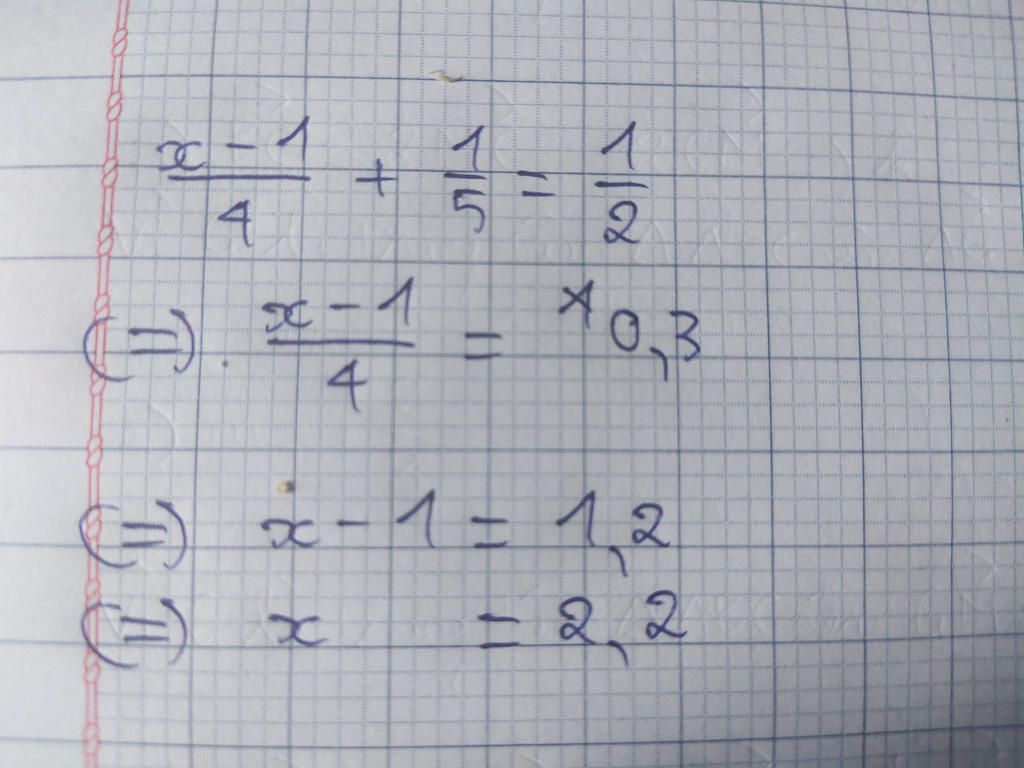 x - 1 / 4 + 1 / 5 = 1 / 2
(=) x - 1 / 4 = 0,3
(=) x - 1 = 1,2
(=) x = 2,2